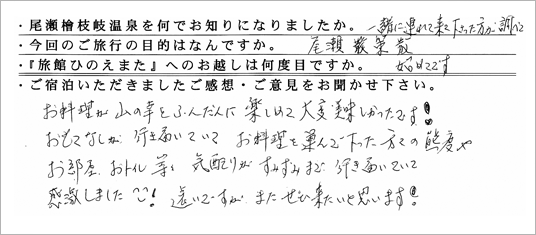 ・尾瀬檜枝岐温泉を何でお知りになりましたか。 一緒に連れて来て下さった方が調べて
・今回のご旅行の目的はなんですか。 尾瀬散策
・『旅館ひのえまた』へのお越しは何度目ですか。 始めてです
・ご宿泊いただきましたご感想・ご意見をお聞かせ下さい。
お料理が山の幸をふんだんに楽しめて大変美味しかったです!
おもてなしが行き届いていてお料理を運んで下さった方々の態度や
お部屋、おトイレ等々 気配りがすみずみまで行き届いていて
感激しました!遠いですが、またぜひ来たいと思います!